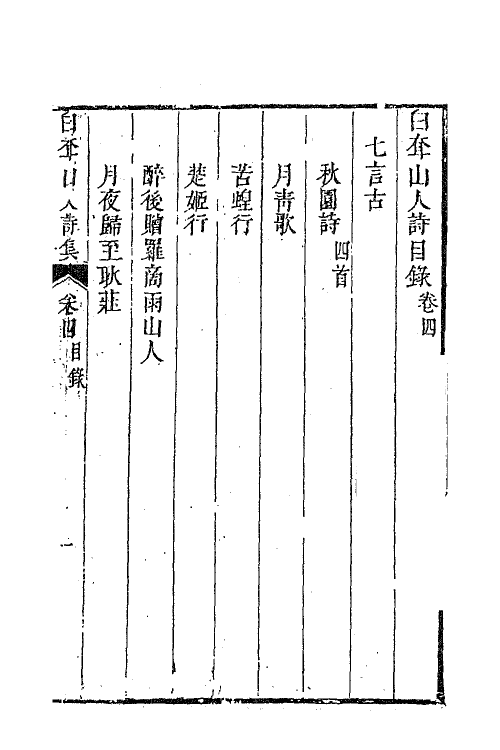 白奎山人詩目錄 卷四
七言古
秋園詩 四首
月靑歌
苦蝗行
楚姬行
醉後贈羅裔雨山人
月夜歸至耿莊
白奎山人詩集 卷四目錄 一